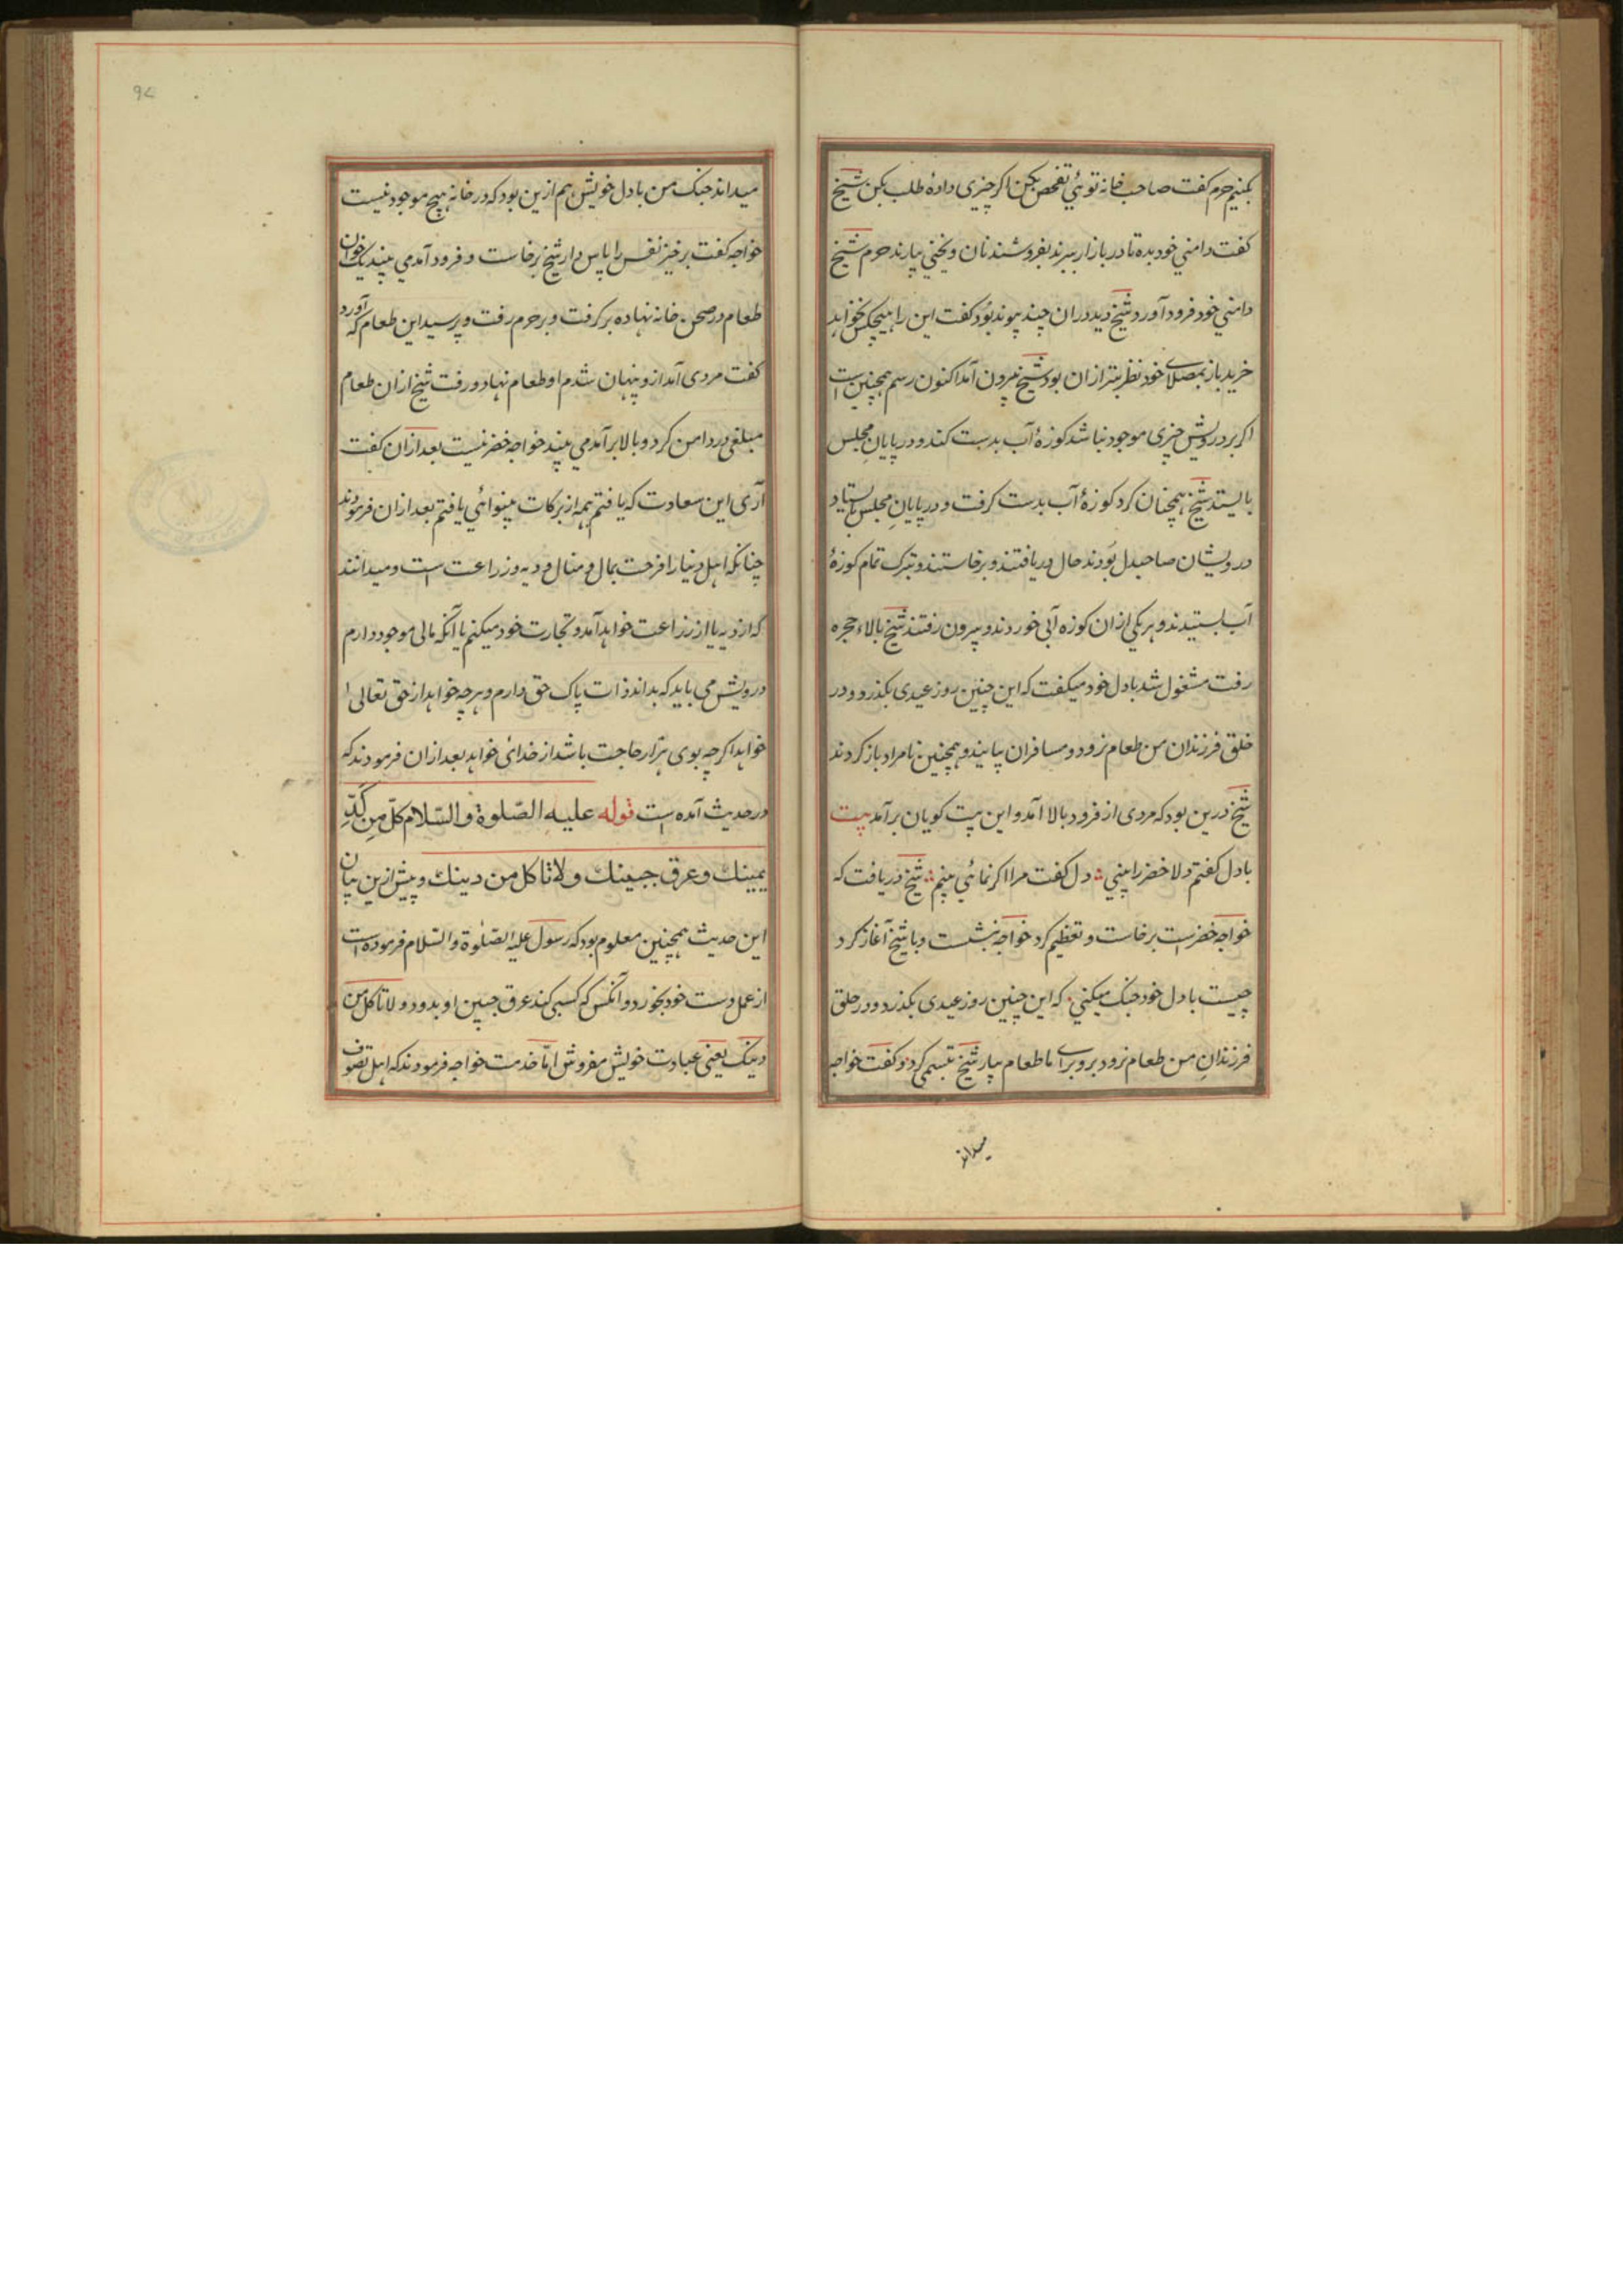 بکنیم حرم گفت صاحب خانه توئي تفحص بکن اکر چیزی دادهٔ طلب بکن شیخ
کفت دامني خود بده تا در بازار ببرند بفروشند نان و یخني بیارند حرم شیخ
دامني خود فرود آورد شیخ دید دران چند پیوند بود کفت این را هیچکس نخواهد
خرید باز بمصلای خود نظر بتر ازان بود شیخ بیرون آمد اکنون رسم همچنین است
اکر بر درویش چیزی موجود نباشد کوزهٔ آب بدست کند و در پایان مجلس
بایستد شیخ همچنان کرد کوزهٔ آب بدست کرفت و در پایانِ مجلس بایستاد
درویشان صاحبدل بودند حال دریافتند و برخاستند و تبرک تمام کوزهٔ
آب بستیدند و هر یکی ازان کوزه آبی خوردند و بیرون رفتند شیخ بالاء حجره
رفت مشغول شد بادل خود میکفت که این چنین روز عیدی بکذرد و در
خلق فرزندان من طعام نرود و مسافران بیایند و همچنین نامراد باز کردند
شیخ درین بود که مردی از فرود بالا آمد و این بیت کویان برآمد بیت
بادل کفتم دلا خضر را بیني دل کفت مرا اکر نمائي بینم شیخ دریافت که
خواجه خضرست برخاست و تعظیم کرد خواجه بنشست و باشیخ آغاز کرد
چیست بادل خود جنک میکني که این چنین روز عیدی بکذرد و در حلق
فرزندانِ من طعام نرود برو برای ما طعام بیار شیخ تبسمی کرد و کفت خواجه
میداند
میداند جنک من بادل خویش هم ازین بود که در خانه هیچ موجود نیست
خواجه کفت برخیز نفس را پاس دار شیخ برخاست و فرود آمد مي بیند یک خوان
طعام در صحن خانه نهاده برکرفت و بر حرم رفت و پرسید این طعام که آورد
کفت مردی آمد ازو پنهان شدم او طعام نهاد و رفت شیخ ازان طعام
مبلغی در دامن کرد و بالا برآمد مي بیند خواجه خضر نیست بعد ازان کفت
آری این سعادت که یافتم همه از برکات بینوائي یافتم بعد ازان فرمودند
چنانکه اهل دنیا را فرحت بمال و منال و دیه و زراعت است و میدانند
که از دیه یا از زراعت خواهد آمد و تجارت خود میکنم یا آنکه مالی موجود دارم
درویش می باید که بداند ذات پاک حق دارم و هرچه خواهد از حق تعالی
خواهد اکرچه بوی هزار حاجت باشد از خدائی خواهد بعد ازان فرمودند که
در حدیث آمده است قوله علیه الصّلوة والسّلام کل من کدِّ
یمینك وعرق جبینك ولا تاکل من دینك و پیش ازین بیان
این حدیث همچنین معلوم بود که رسول علیه الصلوٰة والسّلام فرموده است
از عمل دست خود بخورد و آنکس که کسبی کند عرق جبین او بدود و لا تاکل من
دینک یعنی عبادت خویش مفروش امّا خدمت خواجه فرمودند که اهل تصوف